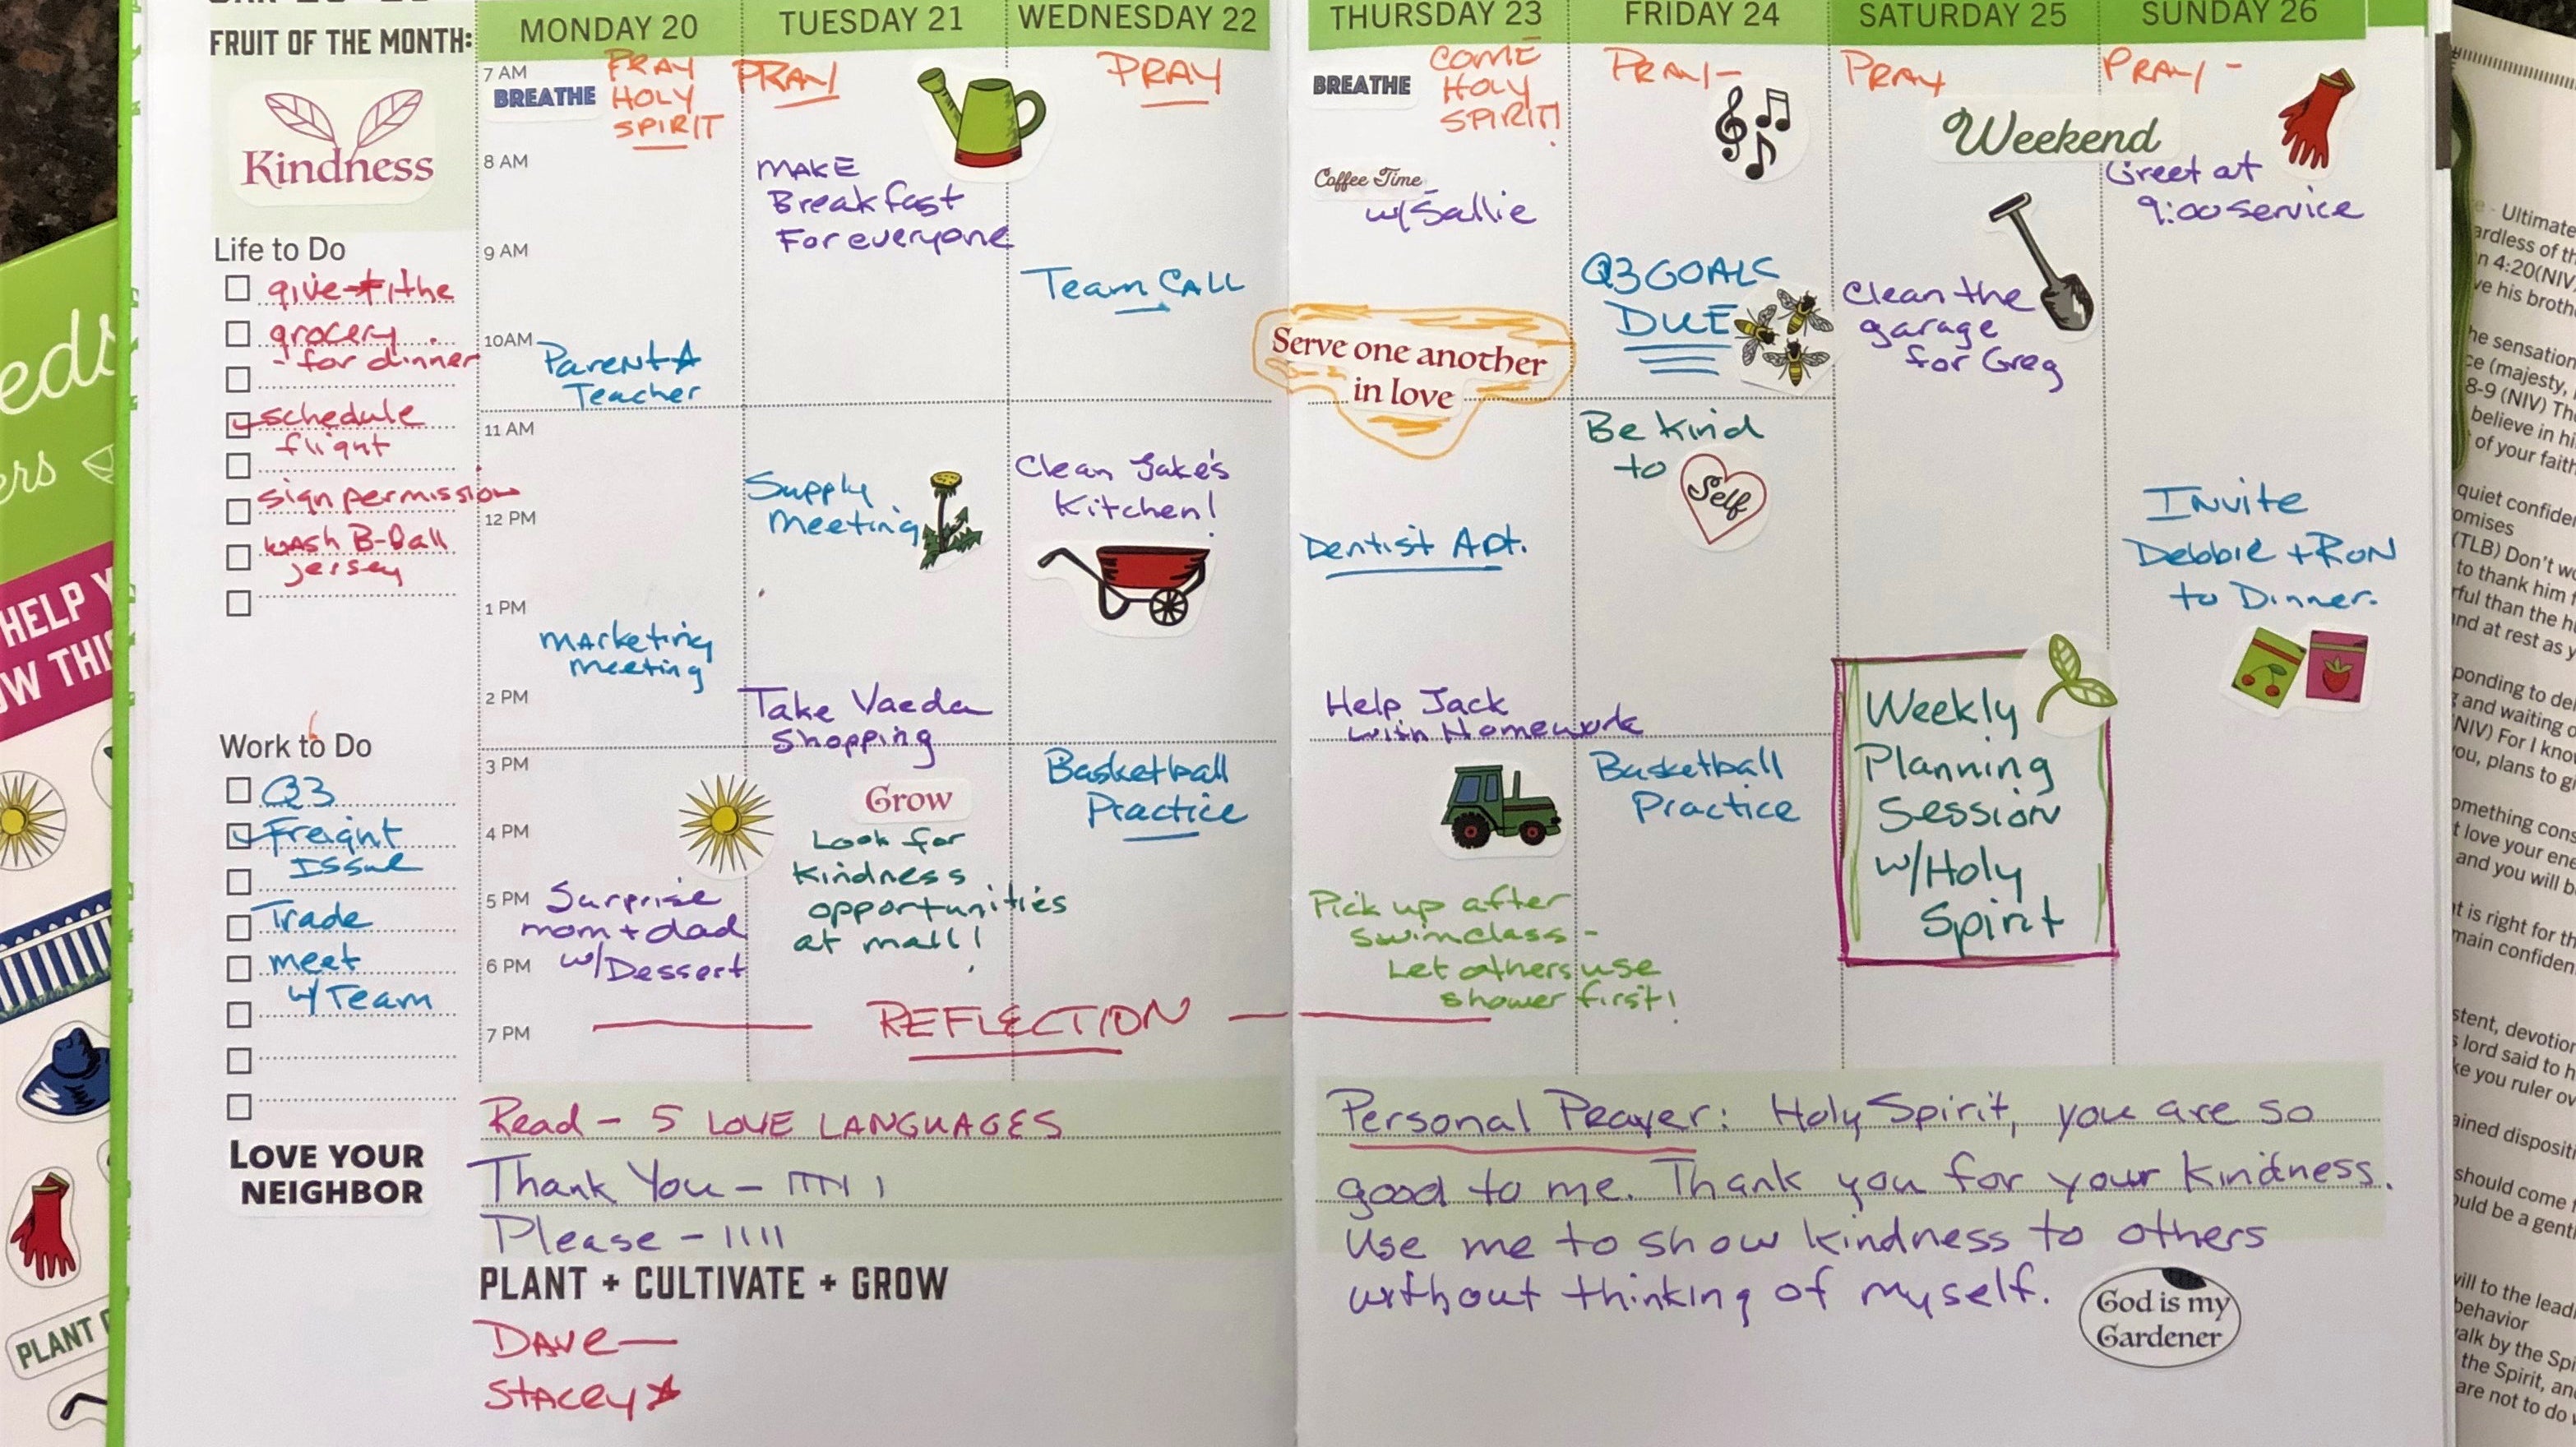 FRUIT OF THE MONTH:
Kindness
Life to Do
give tithe
grocery
- for dinner
schedule
flight
sign permission
wash B-Ball
jersey
Work to Do
Q3
Freight
Issue
Trade
meet
w/ Team
LOVE YOUR
NEIGHBOR
MONDAY 20
7 AM
BREATHE
PRAY
HOLY
SPIRIT
8 AM
9 AM
10AM
Parent
Teacher
11 AM
12 PM
1 PM
Marketing
Meeting
2 PM
3 PM
4 PM
5 PM
Surprise
mom + dad
w/Dessert
6 PM
7 PM
TUESDAY 21
PRAY
MAKE
Breakfast
For everyone
Supply
Meeting
Take Vaeda
Shopping
Grow
Look for
kindness
opportunities
at mall!
WEDNESDAY 22
PRAY
Team CALL
Clean Jake's
Kitchen!
Basketball
Practice
THURSDAY 23
BREATHE
COME
HOLY
SPIRIT!
Coffee Time
w/ Sallie
Serve one another
in love
Dentist Apt.
Help Jack
with Homework
Pick up after
swimclass -
Let others use
shower first!
FRIDAY 24
PRAY-
Q3 GOALS
DUE
Be Kind
to
Self
Basketball
Practice
SATURDAY 25
PRAY
Weekend
Clean the
garage
for Greg
Weekly
Planning
Session
w/Holy
Spirit
SUNDAY 26
PRAY -
Greet at
9:00 service
Invite
Debbie + Ron
to Dinner.
REFLECTION
Read - 5 LOVE LANGUAGES
Thank You -
Please - IIII
PLANT + CULTIVATE + GROW
Dave—
Stacey
Personal Prayer: Holy Spirit, you are so
good to me. Thank you for your kindness.
Use me to show kindness to others
without thinking of myself.
God is my
Gardener
eds
ers
HELP
PLANT
Ultimate
4:20(NIV)
8-9 (NIV)
believe in
of your faith
(TLB) Don't
to thank him
and at rest as
and waiting
(NIV) For I
you, plans to
love your
and you will
is right for
lord said to
you ruler
should come
would be a
will to the
behavior
walk by the
the Spirit,
are not to do